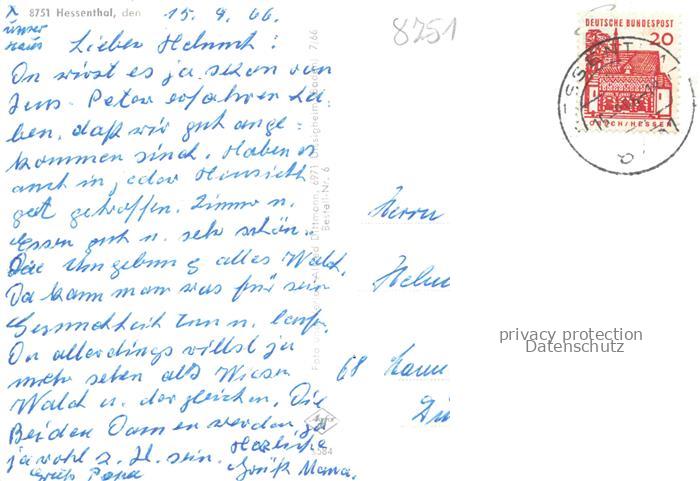 x
unser
Haus
8751 Hessenthal, den 15. 9. 66.
8251
DEUTSCHE BUNDESPOST
20
LORSCH/HESSEN
Lieber Helmut!
Du wirst es ja schon von
Jens-Peter erfahren ha-
ben, daß wir gut ange-
kommen sind. Haben es
auch in jeder Hinsicht
gut getroffen. Zimmer u.
Essen gut u. sehr schön.
Die Umgebung alles Wald.
Da kann man was für sein
Gesundheit tun u. laufen.
Du allerdings willst ja
mehr sehen als Wiesen
Wald u. dergleichen. Die
Beiden Damen werden
ja wohl z. H. sein. Herzliche
Gruß Papa Grüße Mama.
Herrn
Helm
68 Mann
7/66
Bestell-Nr. 6
6584
privacy protection
Datenschutz